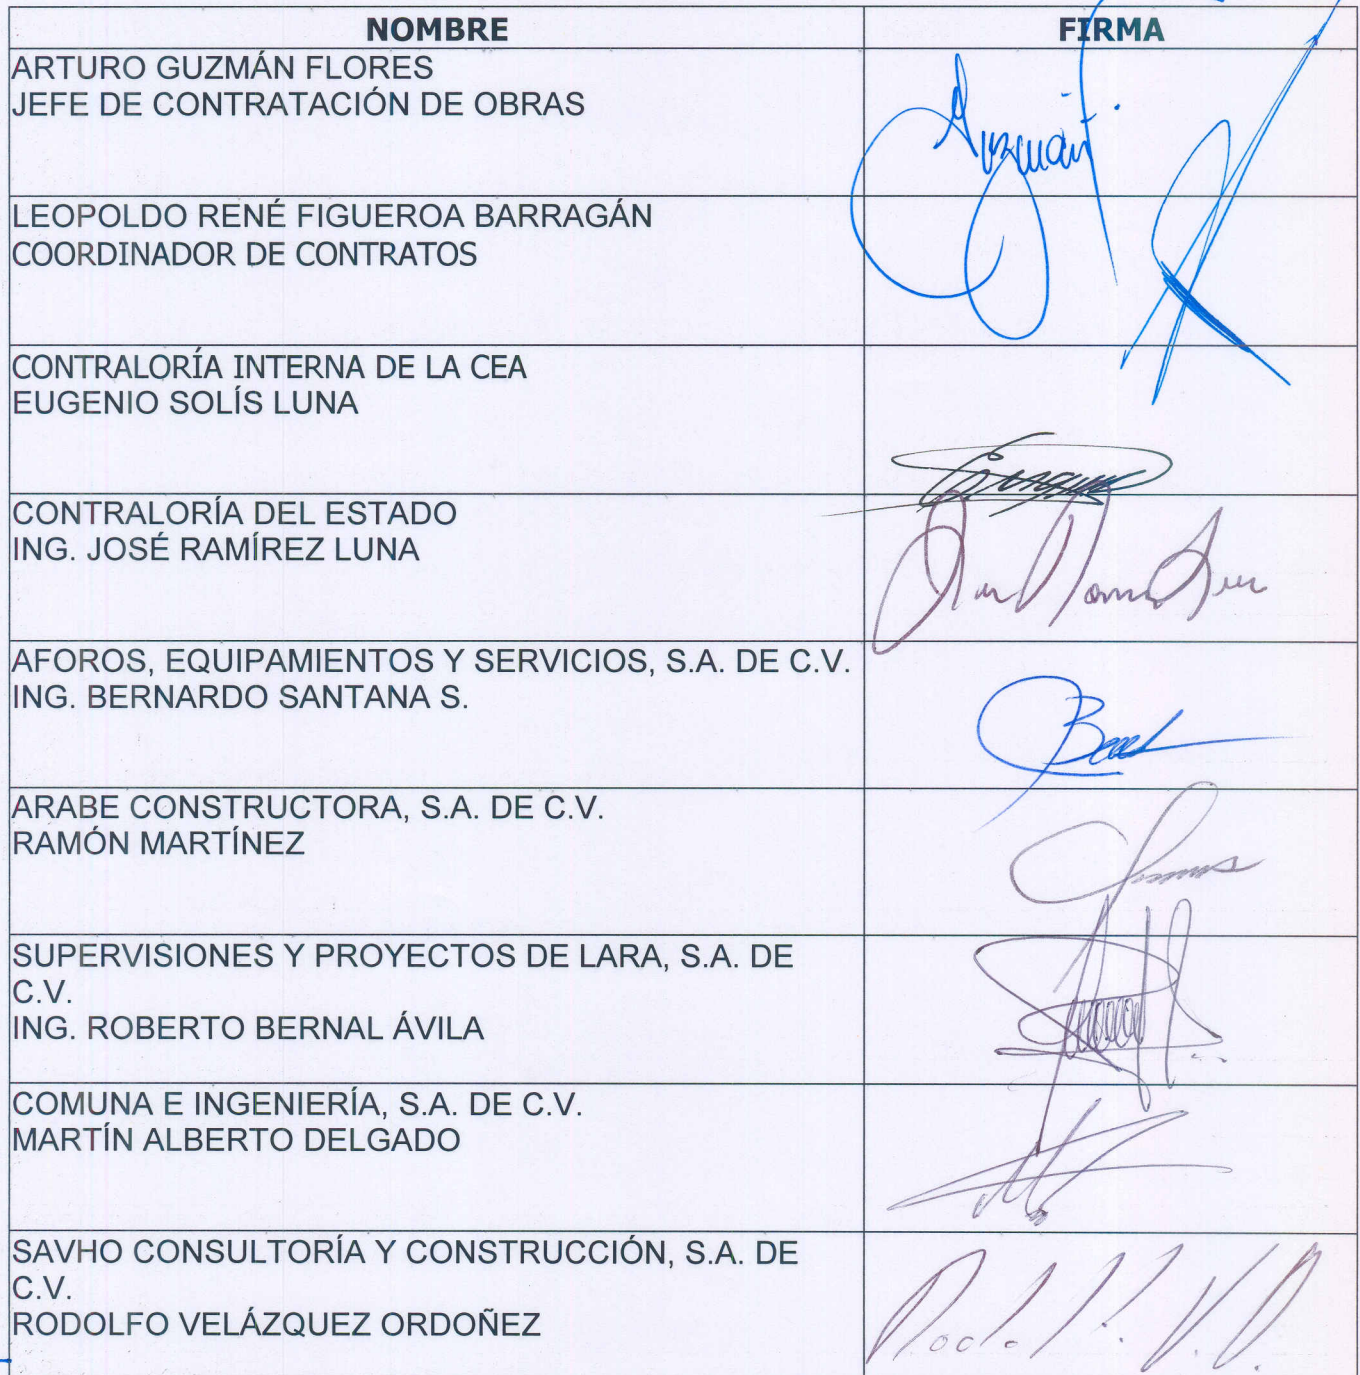 NOMBRE FIRMA
ARTURO GUZMÁN FLORES
JEFE DE CONTRATACIÓN DE OBRAS
Guzmán F.
LEOPOLDO RENÉ FIGUEROA BARRAGÁN
COORDINADOR DE CONTRATOS
CONTRALORÍA INTERNA DE LA CEA
EUGENIO SOLÍS LUNA
CONTRALORÍA DEL ESTADO
ING. JOSÉ RAMÍREZ LUNA
AFOROS, EQUIPAMIENTOS Y SERVICIOS, S.A. DE C.V.
ING. BERNARDO SANTANA S.
ARABE CONSTRUCTORA, S.A. DE C.V.
RAMÓN MARTÍNEZ
SUPERVISIONES Y PROYECTOS DE LARA, S.A. DE
C.V.
ING. ROBERTO BERNAL ÁVILA
COMUNA E INGENIERÍA, S.A. DE C.V.
MARTÍN ALBERTO DELGADO
SAVHO CONSULTORÍA Y CONSTRUCCIÓN, S.A. DE
C.V.
RODOLFO VELÁZQUEZ ORDOÑEZ